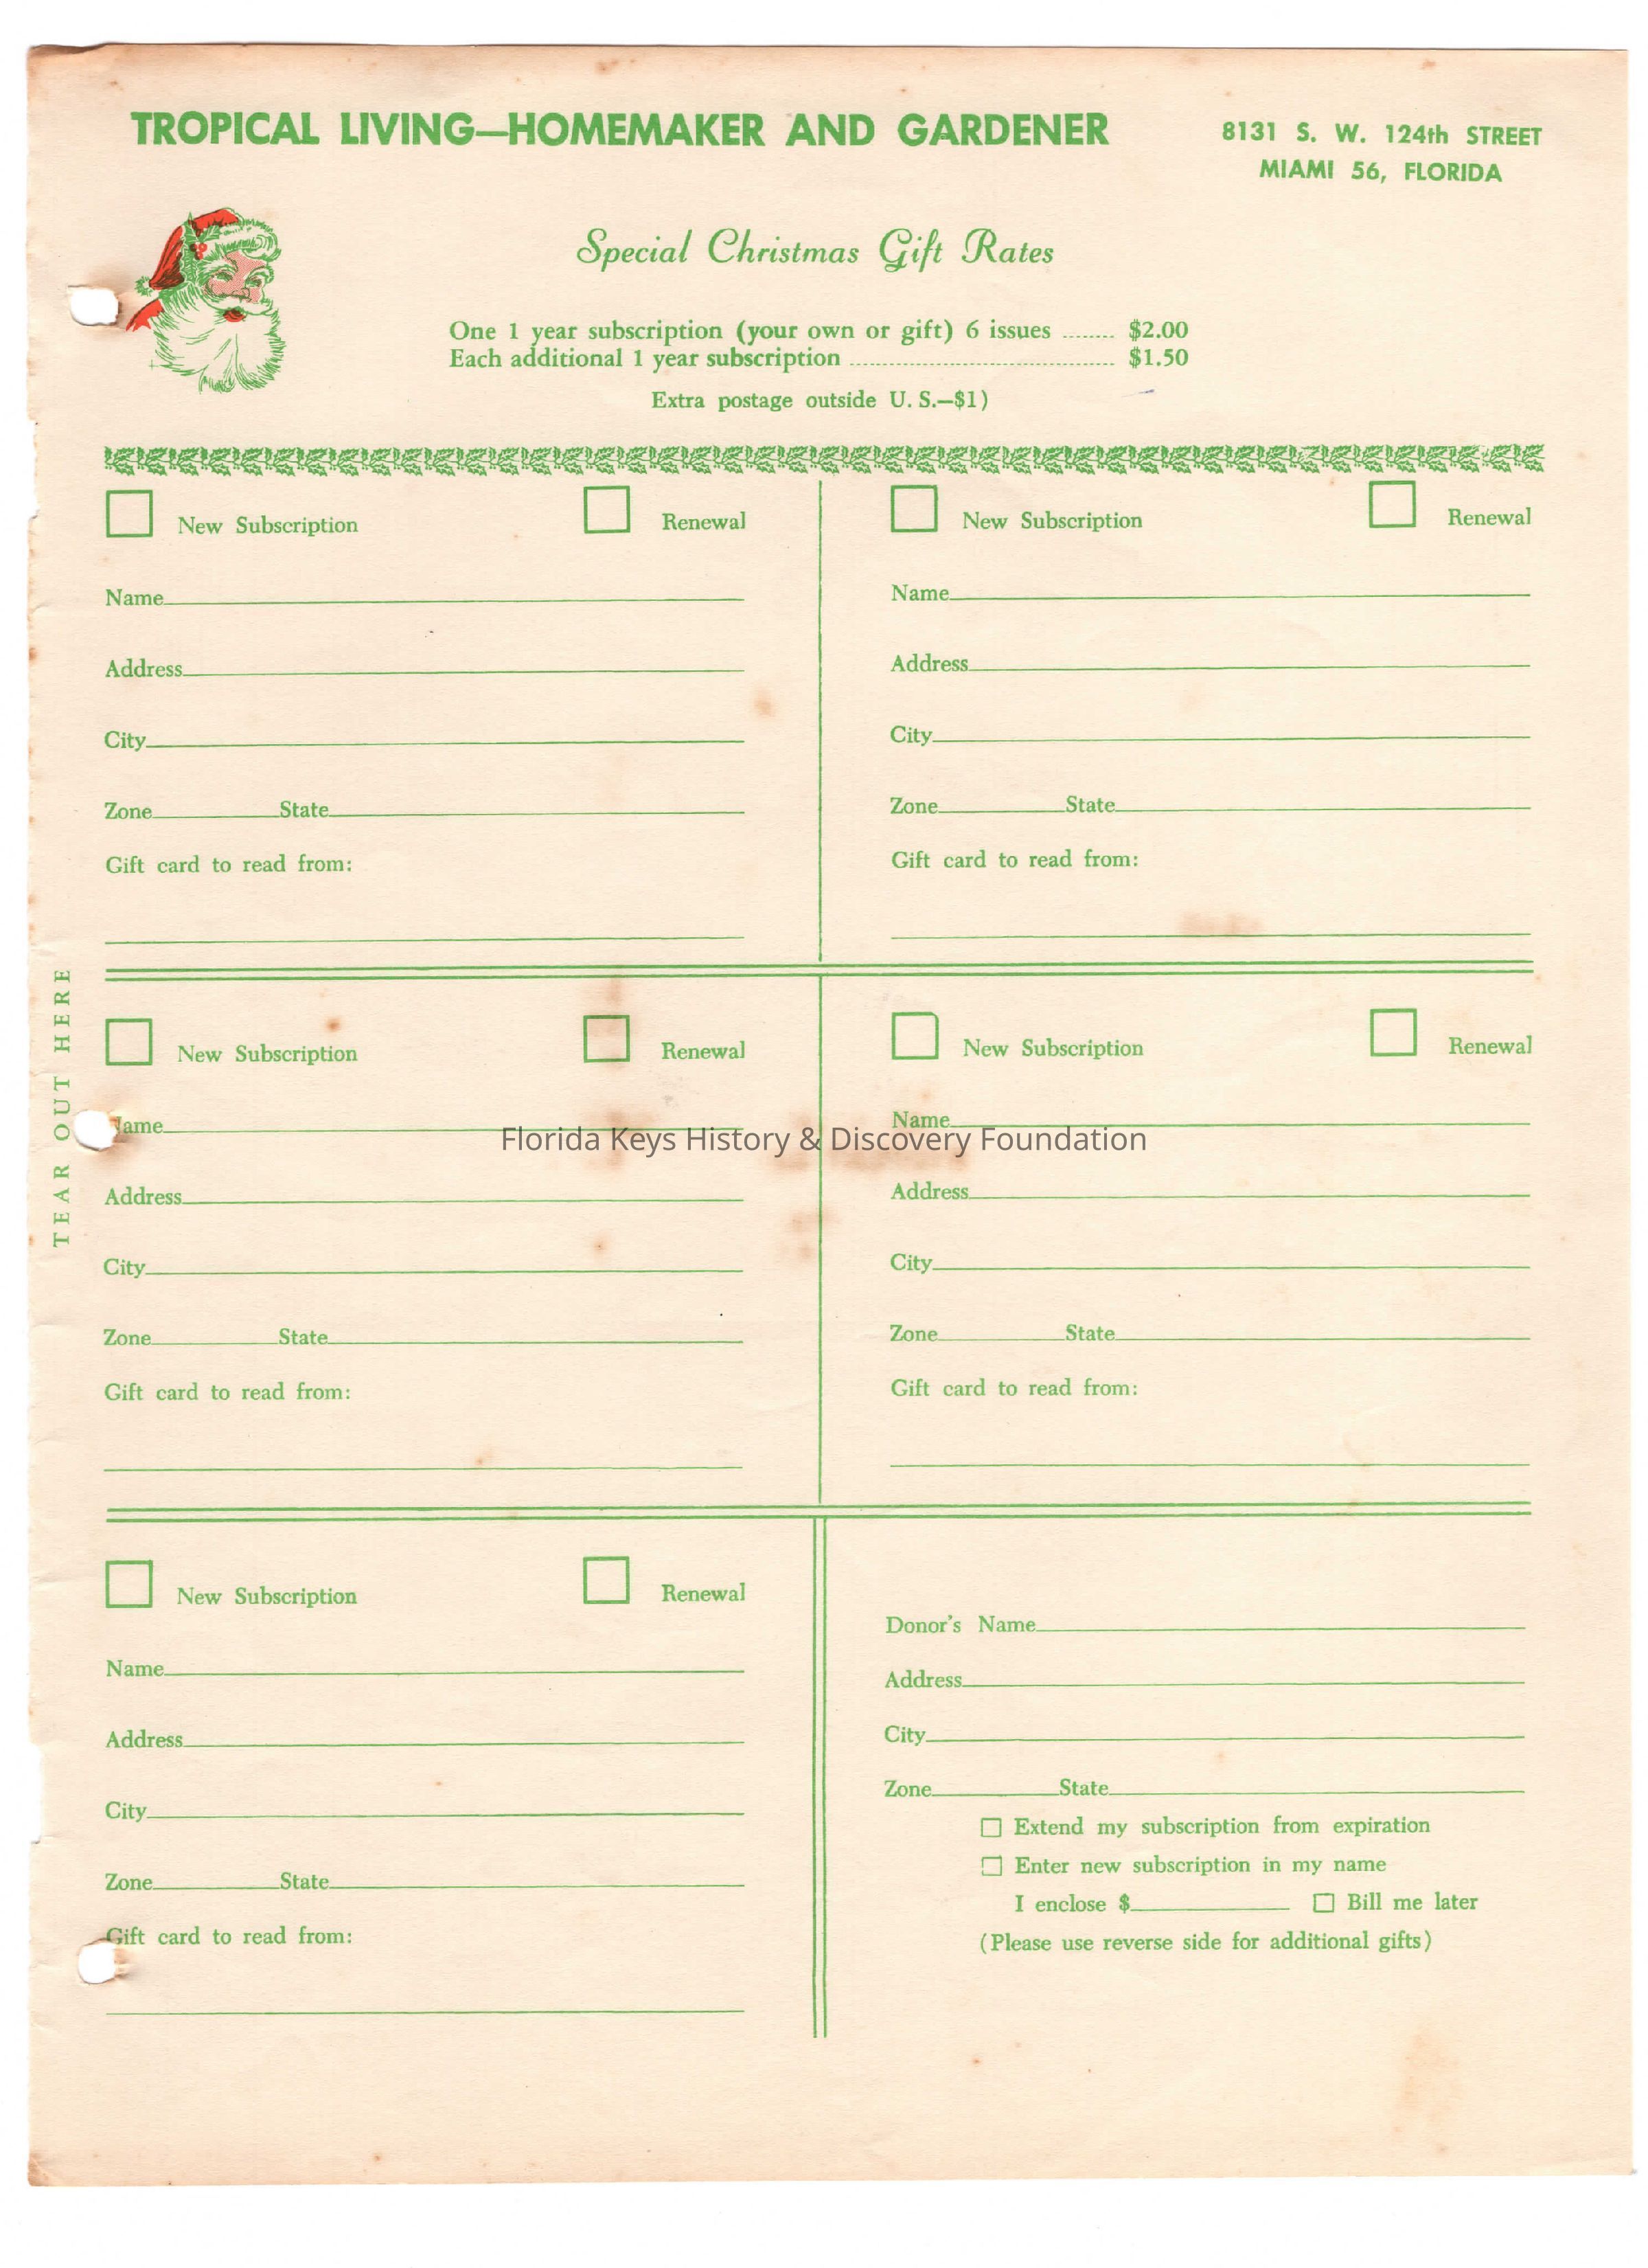 TROPICAL LIVING—HOMEMAKER AND GARDENER
8131 S. W. 124th STREET
MIAMI 56, FLORIDA
Special Christmas Gift Rates
One 1 year subscription (your own or gift) 6 issues ........ $2.00
Each additional 1 year subscription ........................................ $1.50
Extra postage outside U. S.—$1)
New Subscription Renewal
Name
Address
City
Zone State
Gift card to read from:
New Subscription Renewal
Name
Address
City
Zone State
Gift card to read from:
TEAR OUT HERE
New Subscription Renewal
ame
Address
City
Zone State
Gift card to read from:
New Subscription Renewal
Name
Address
City
Zone State
Gift card to read from:
Florida Keys History & Discovery Foundation
New Subscription Renewal
Name
Address
City
Zone State
Gift card to read from:
Donor's Name
Address
City
Zone State
Extend my subscription from expiration
Enter new subscription in my name
I enclose $ Bill me later
(Please use reverse side for additional gifts)